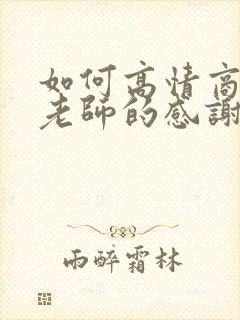 如何高情商
老師的感謝
雨醉霜林